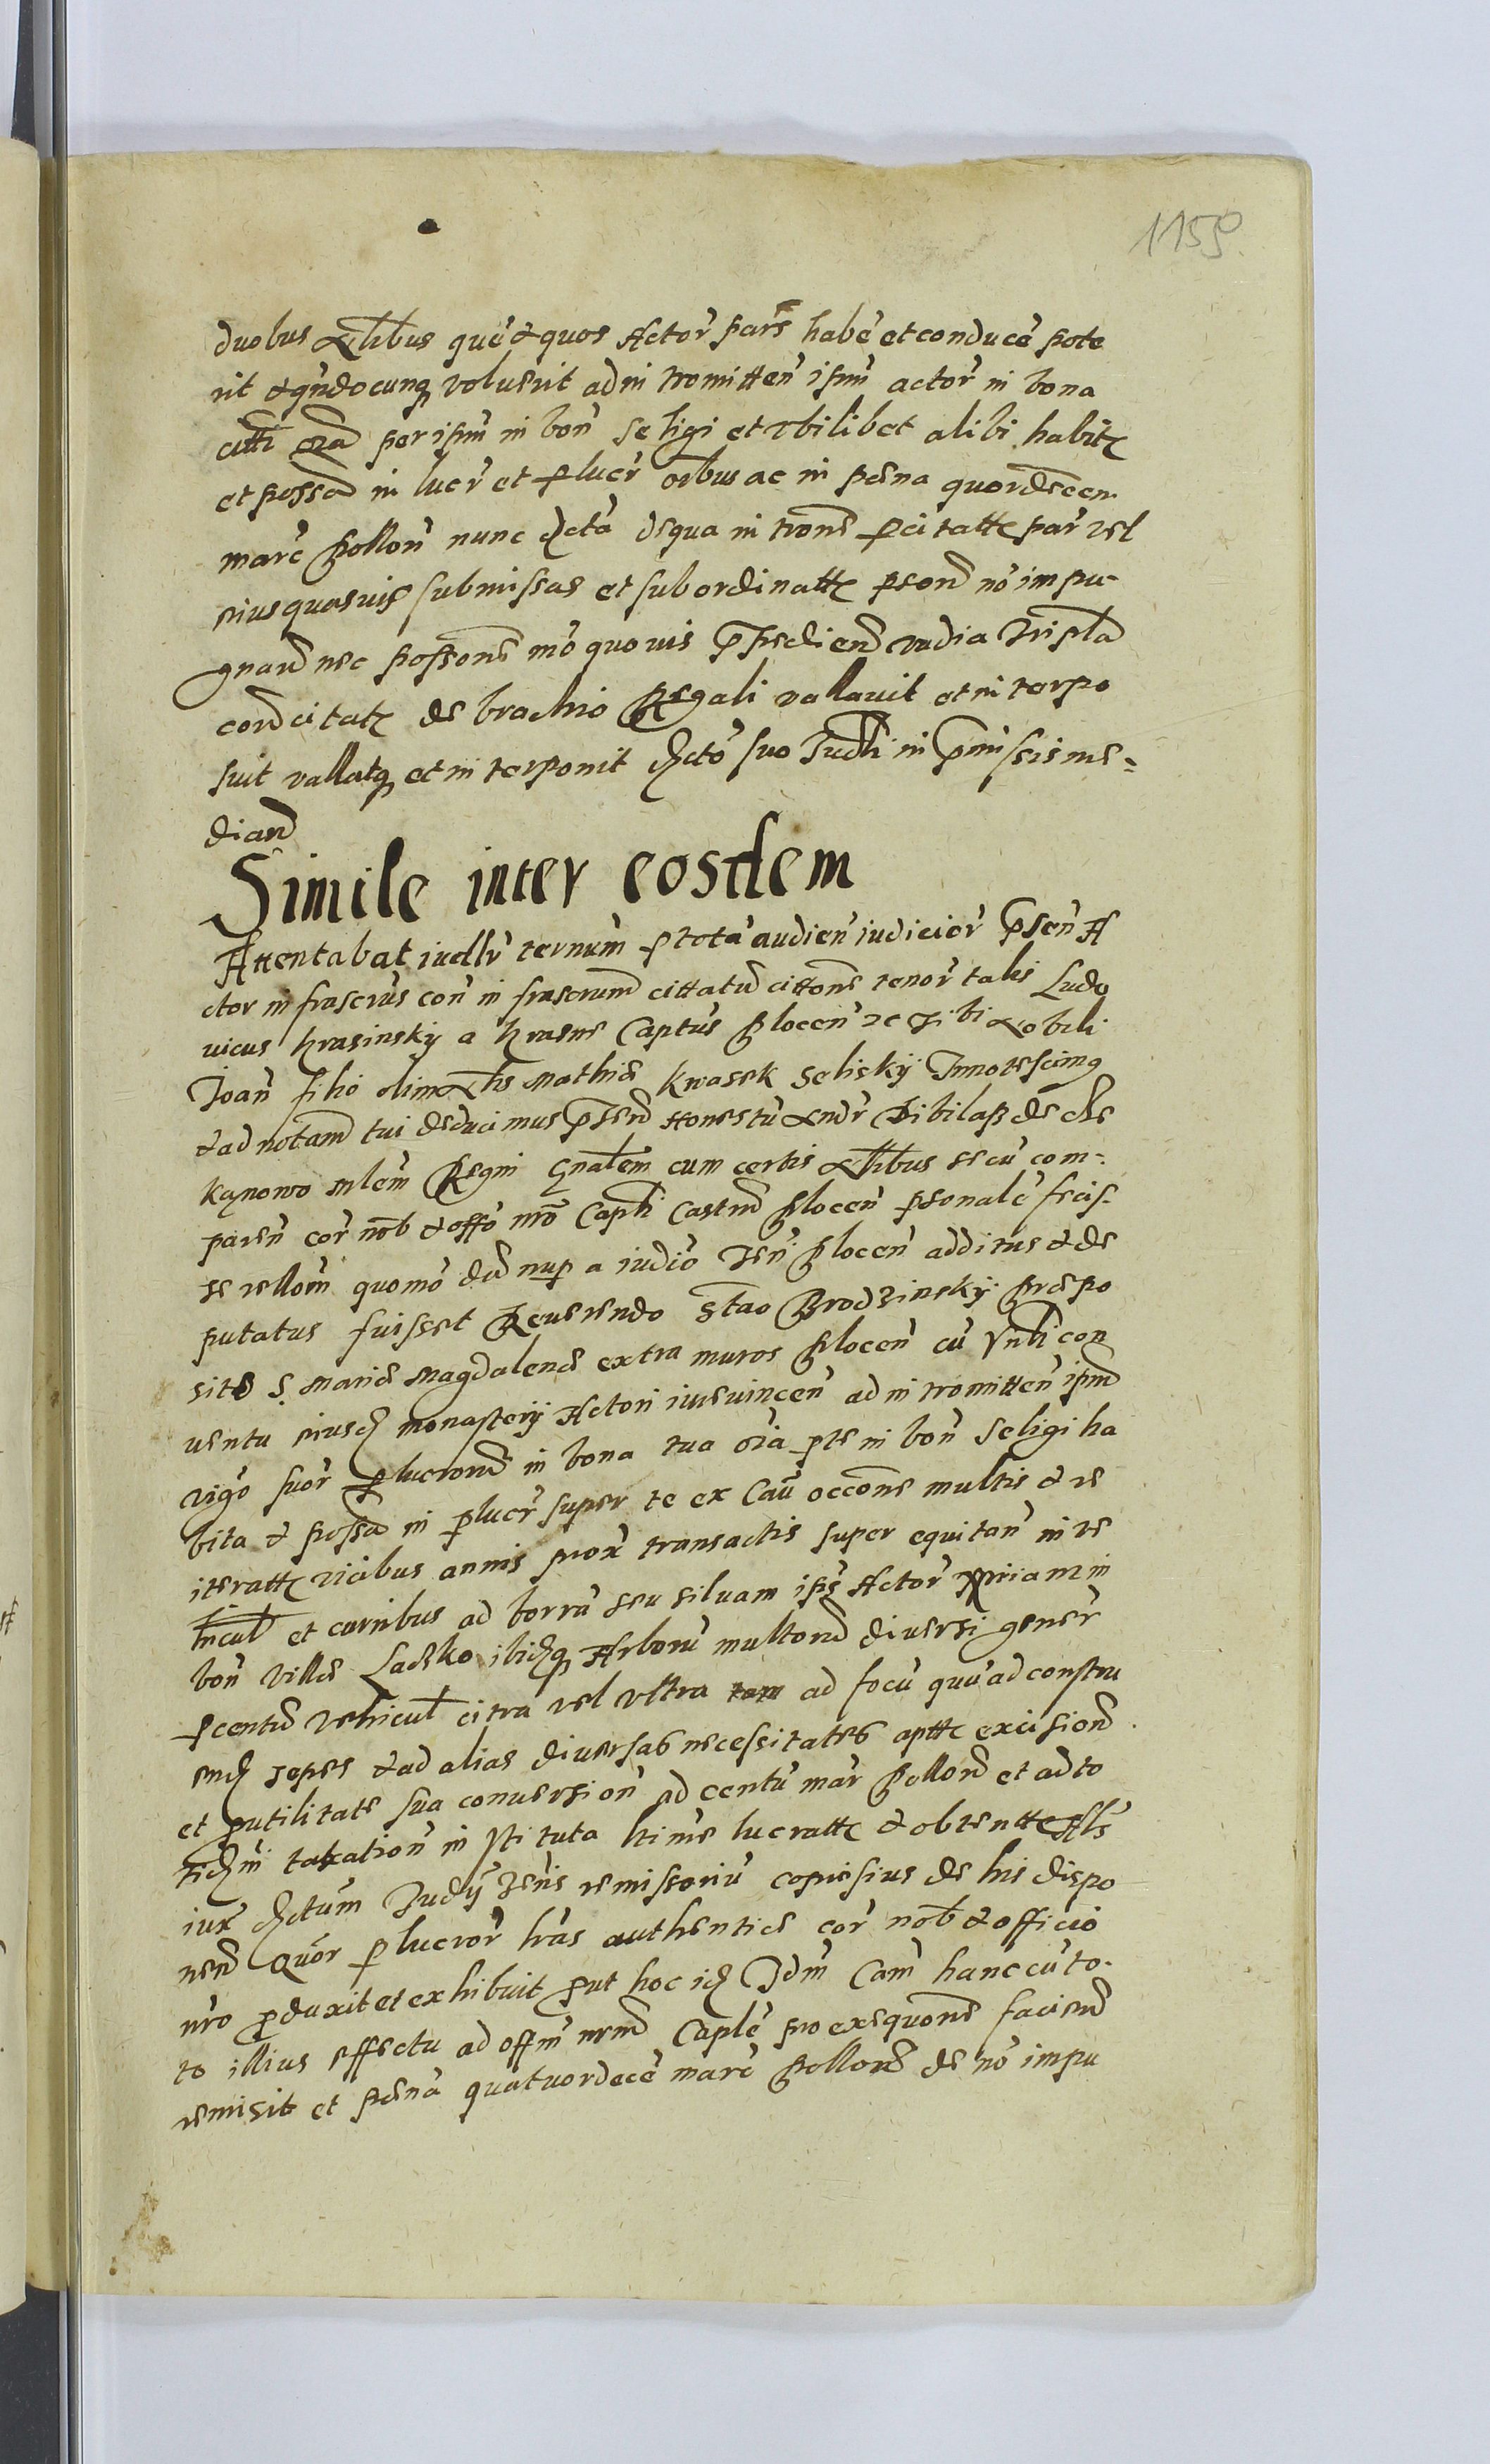 1159
duobus Nlibus que et quos Actor pars habe et conduce pote
rit et qndocunq voluerit ad in tromitten ipm actor in bona
citti oia per ipm in bon Seligi et vbilibet alibi habit
et possa in lucr et plucr orbus ac in pena quordecem
marc Pollon nunc dcta de qua in trone per citatt par vel
eius quasuis submissas et subordinatt pson no impu-
gnand nec possone mo quouis ppediend vadia tripla
cord citat de brachio Regali vallauit et interpo
suit vallatq et in terponit dcto suo Judli in pmissis me=
diand
Simile inter eosdem
Attentabat iudlr ternum ptota audien iudicior psen A
ctor infrascrus con in frascrum cittatum cittone tenor talis Ludo
uicus Krasinsky a Krasne Captus Plocen etc Tibi Nobili
Joan filio olim Nlis Mathie Kwasek Selisky Innotescimq
et ad notam tui deducimus psend Honestu Andr Bibilas de
kąnowo mlem Regni Gnalem cum certis Nlibus secu com-
paren cor nob et offo nro Capli Castrn Plocen psonale fecis
se rellom quomo dum nup a iudio Ten Plocen additus et de
putatus fuisset Reuerendo Stao Brodzinsky Prepo
sito S. Marie Magdalene extra muros Plocen cu Vnli con
uentu eiusd monasterij Actori iureuincen ad in tromitten ipm
vigo suor plucrorum in bona tua oia pte in bon Seligi ha
bita et possa in plucr super te ex Cau occone multis et re
iteratt vicibus annis prox transactis super equitan in ve
hicul et curribus ad borra seu siluam ips Actor ppriam in
bon Ville Lacsko ibidq Arboru multorum diuersi gener
pcentum Vehicul citra vel Vltra ad focu quu ad constru
end sepes et ad alias diuersas necessitates aptt excision
et putilitate sua conuersion ad centu mar Pollon et ad to
tidm taxation in stituta ltime lucratt et obtentt Als
iux dctum Judij Tenis remissoriu copiosius de his dispo
nen Quor plucror lras authentice cor nob et officio
nro pduxit et exhibuit put hoc id Idm Cam hanc cu to-
to illius effectu ad offm nrm Caple pro exequone faciend
remisit et pena quatuordece marc Pollon de no impu